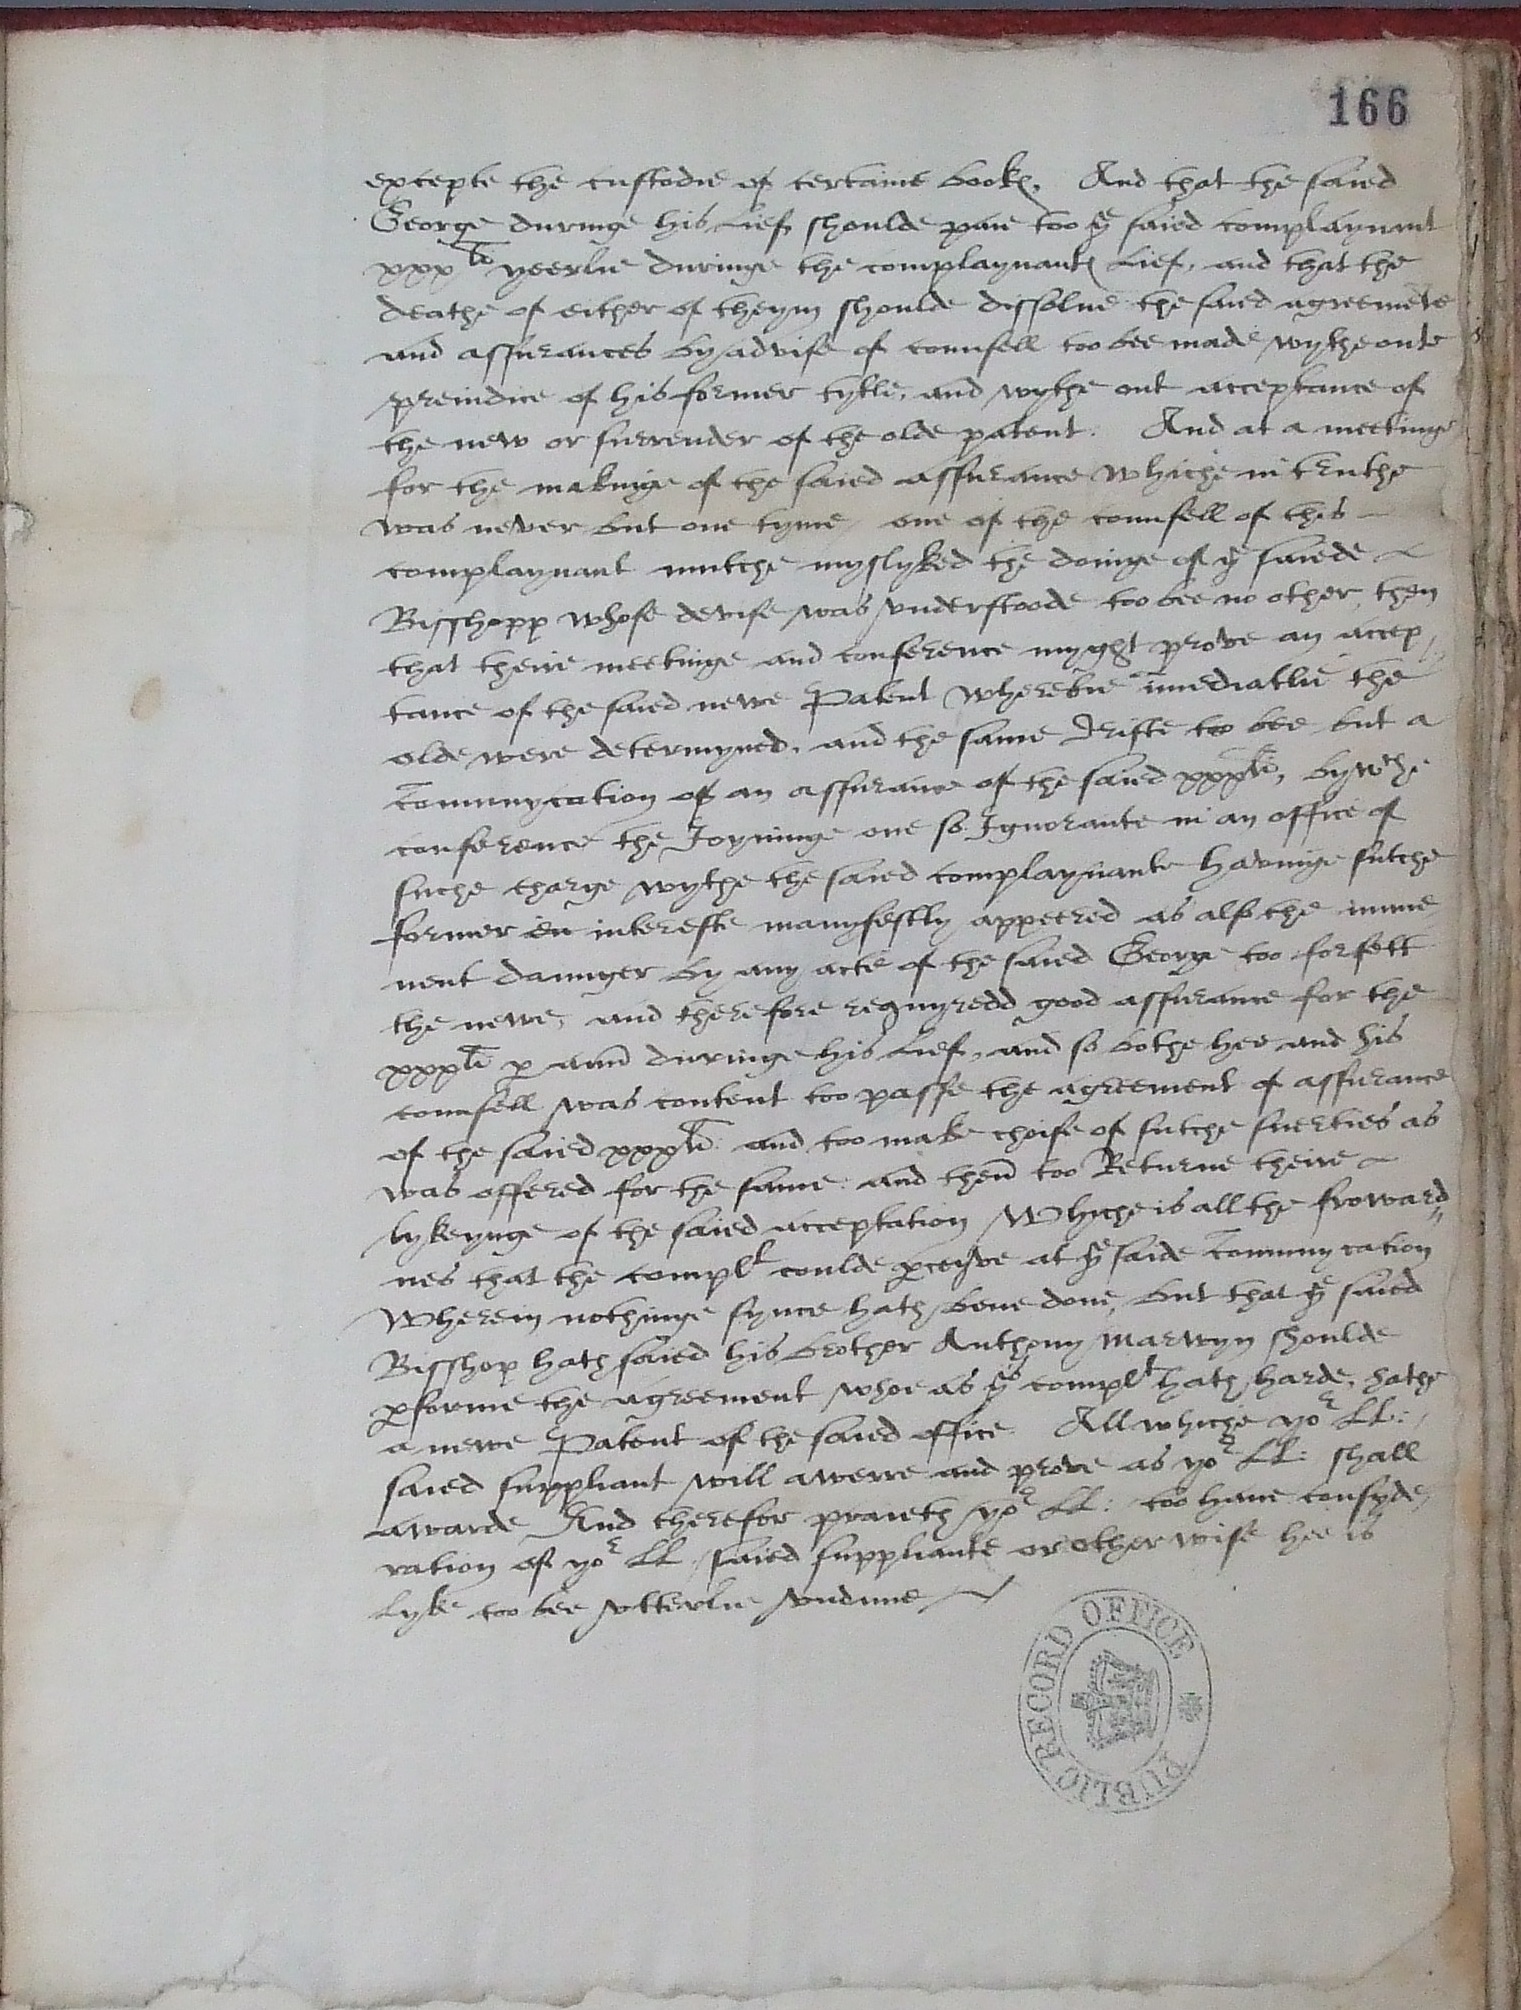 166
excepte the custodie of certaine bookes. And that the saied
George duringe his Lief shoulde paie too yͤ saied complaynant
xxxˡⁱ yeerlie duringe the complaynantes Lief, and that the
deathe of either of theym shoulde dissolue the saied agreemēte
and assurances by advise of counsell too bee made wytheoute
preiudice of his former tytle, and wythe out acceptance of
the new or surrender of the olde patent: And at a meetinge
for the makinge of the saied assurance whiche in truthe
was never but one tyme, one of the counsell of this
complaynant mutche myslyked the doinge of yͤ saiede
Bisshopp whose devise was vnderstoode too bee no other then
that theire meetinge and conference myght prove an accep
tance of the saied newe Patent wherebie īmediatlie the
olde were determyned, and the same drifte too bee but a
cōmunycation of an assurance of the saied xxxˡⁱ, by wᶜhe
conference the Joyninge one so Ignorante in an office of
suche charge wythe the saied complaynante havinge sutche
former intereste manyfestly appeered as also the imme
nent daunger by any acte of the saied George too forfett
the newe, and therefore requyredd good assurance for the
xxxˡⁱ p annū duringe his Lief, and so bothe hee and his
counsell was content too passe the agreement of assurance
of the saied xxxˡⁱ: and too make choise of sutche suerties as
was offered for the same: and thenn too Returne theire
lykeynge of the saied acceptation Whiche is all the froward
nes that the complᵗ coulde pceyve at yͤ saide cōmunycation
Wherein nothinge synce hath bene done, but that yͤ saied
Bisshop hath saied his brother Anthony Marwyn shoulde
pforme the agreement whoe as yˢ complᵗ hath harde, hathe
a newe Patent of the saied office All whiche yoʳ LL:
saied suppliant will awerre and prove as yoʳ LL: shall
awarde And therefor praieth yoʳ LL: too haue consyde
ration of yoʳ LL saied suppliante or otherwise hee is
Lyke too bee vtterlie vndune
PUBLIC RECORD OFFICE